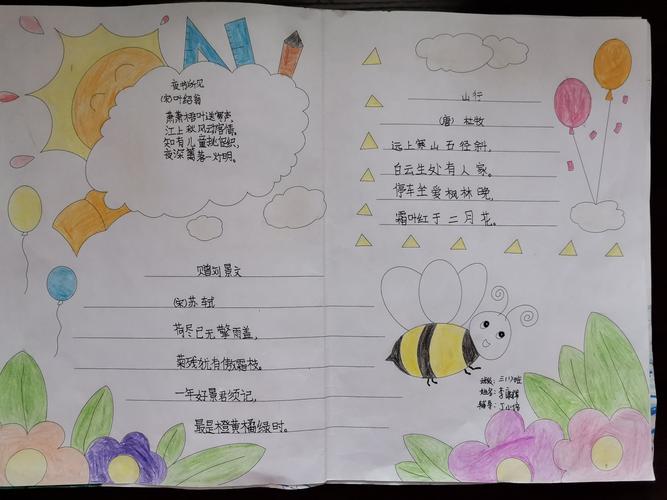 夜书所见
(宋)叶绍翁
萧萧梧叶送寒声,
江上秋风动客情。
知有儿童挑促织,
夜深篱落一灯明。
赠刘景文
(宋)苏轼
荷尽已无擎雨盖,
菊残犹有傲霜枝。
一年好景君须记,
最是橙黄橘绿时。
山行
(唐) 杜牧
远上寒山石径斜,
白云生处有人家。
停车坐爱枫林晚,
霜叶红于二月花。
班级:三(1)班
姓名:李
辅导:丁